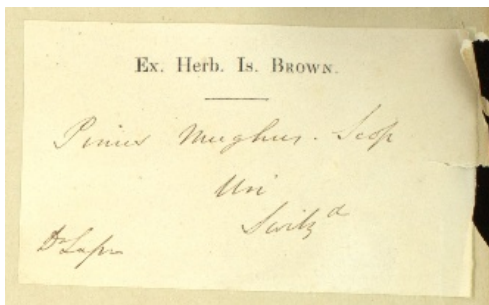 Ex. Herb. Is. Brown.
Pinus Mughus. Scop
Uri
Switzd